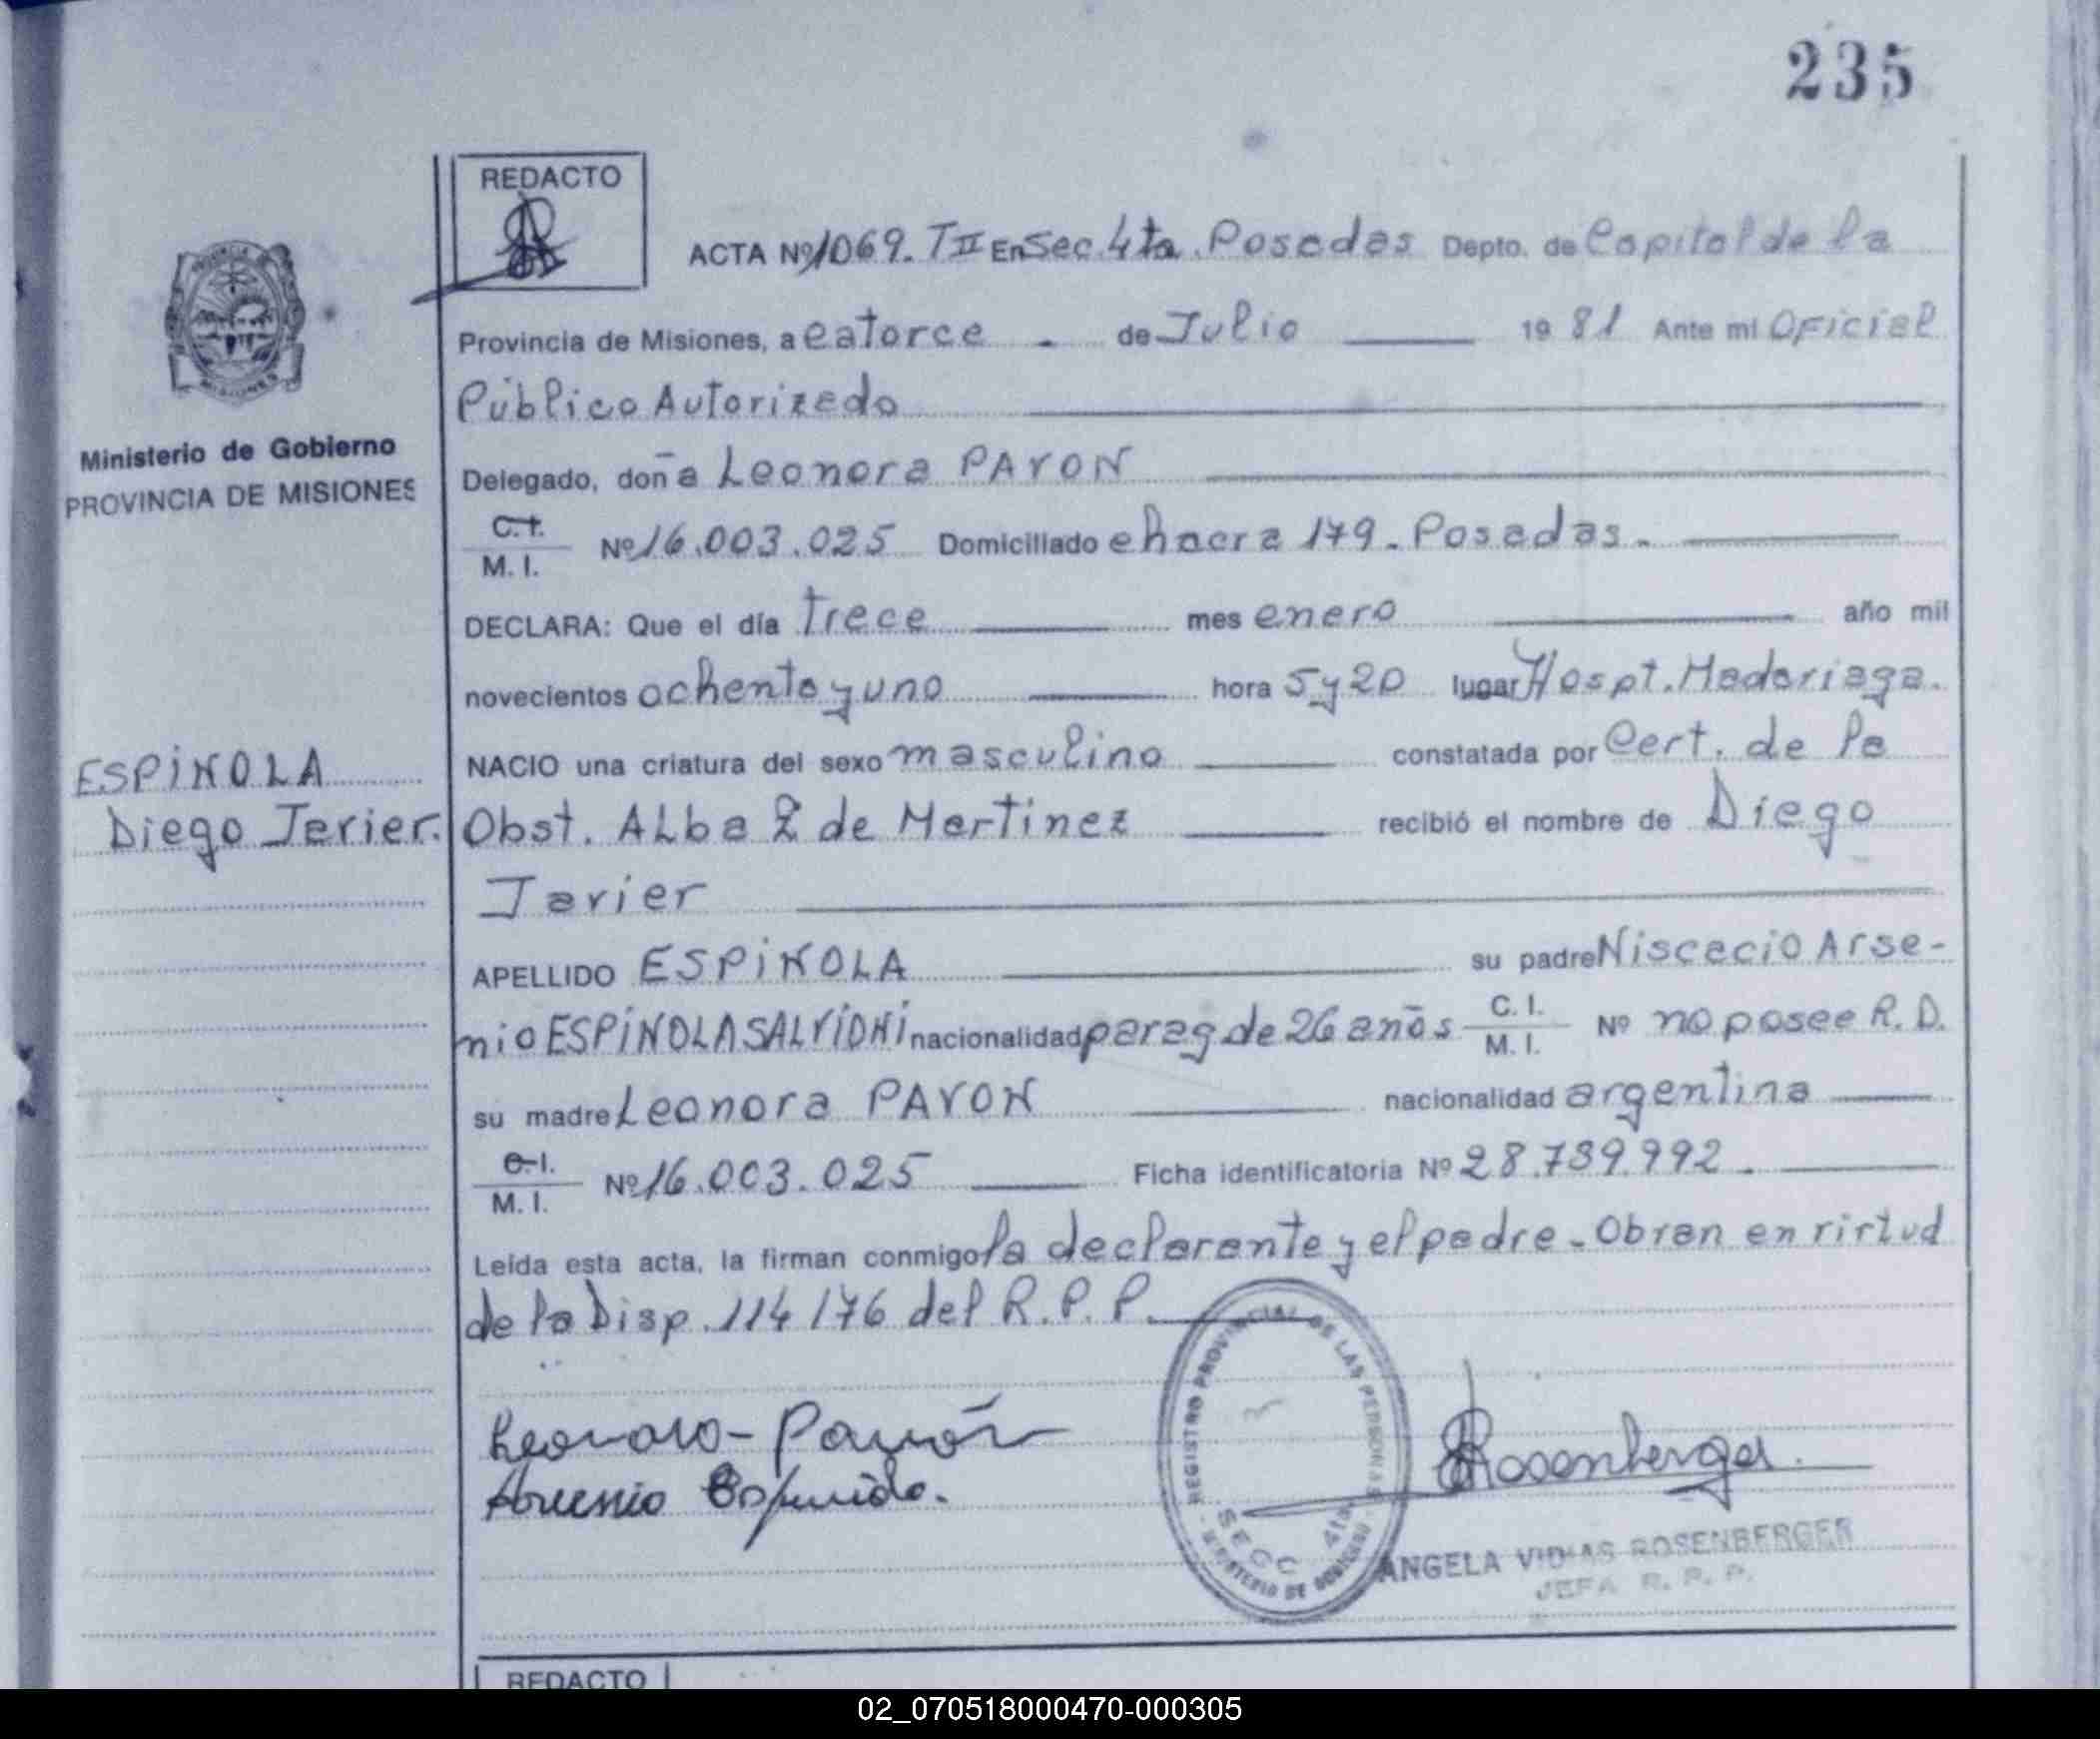 235
REDACTO
ACTA Nº 1069. T II En Sec. 4ta. Posadas Depto. de Capital de la
Provincia de Misiones, a catorce - de Julio 19 81 Ante mi Oficial
Público Autorizado
Ministerio de Gobierno
PROVINCIA DE MISIONES
Delegado, doña Leonora PAVON
C.I. M.I. Nº 16.003.025 Domiciliado chacra 179 - Posadas.
DECLARA: Que el día trece mes enero año mil
novecientos ochenta y uno hora 5 y 20 lugar Hospt. Madariaga.
NACIO una criatura del sexo masculino constatada por Cert. de la
ESPINOLA
Diego Javier.
Obst. Alba Z de Martinez recibió el nombre de Diego
Javier
APELLIDO ESPINOLA su padre Arse-
nio ESPINOLA SALVIONI nacionalidad parag de 26 años C.I. M.I. Nº no posee R.D.
su madre Leonora PAVON nacionalidad argentina
C.I. M.I. Nº 16.003.025 Ficha identificatoria Nº 28.739.992.
Leída esta acta, la firman conmigo la declarante y el padre - Obran en virtud
de la Disp. 114/76 del R.P.P.
REGISTRO PROVINCIAL DE LAS PERSONAS
SECC 4ta
MINISTERIO DE GOBIERNO
Leonora - Pavón
Arsenio Espinola.
Rosenberger
ANGELA VIDHAS ROSENBERGER
JEFA R. P. P.
REDACTO
02_070518000470-000305